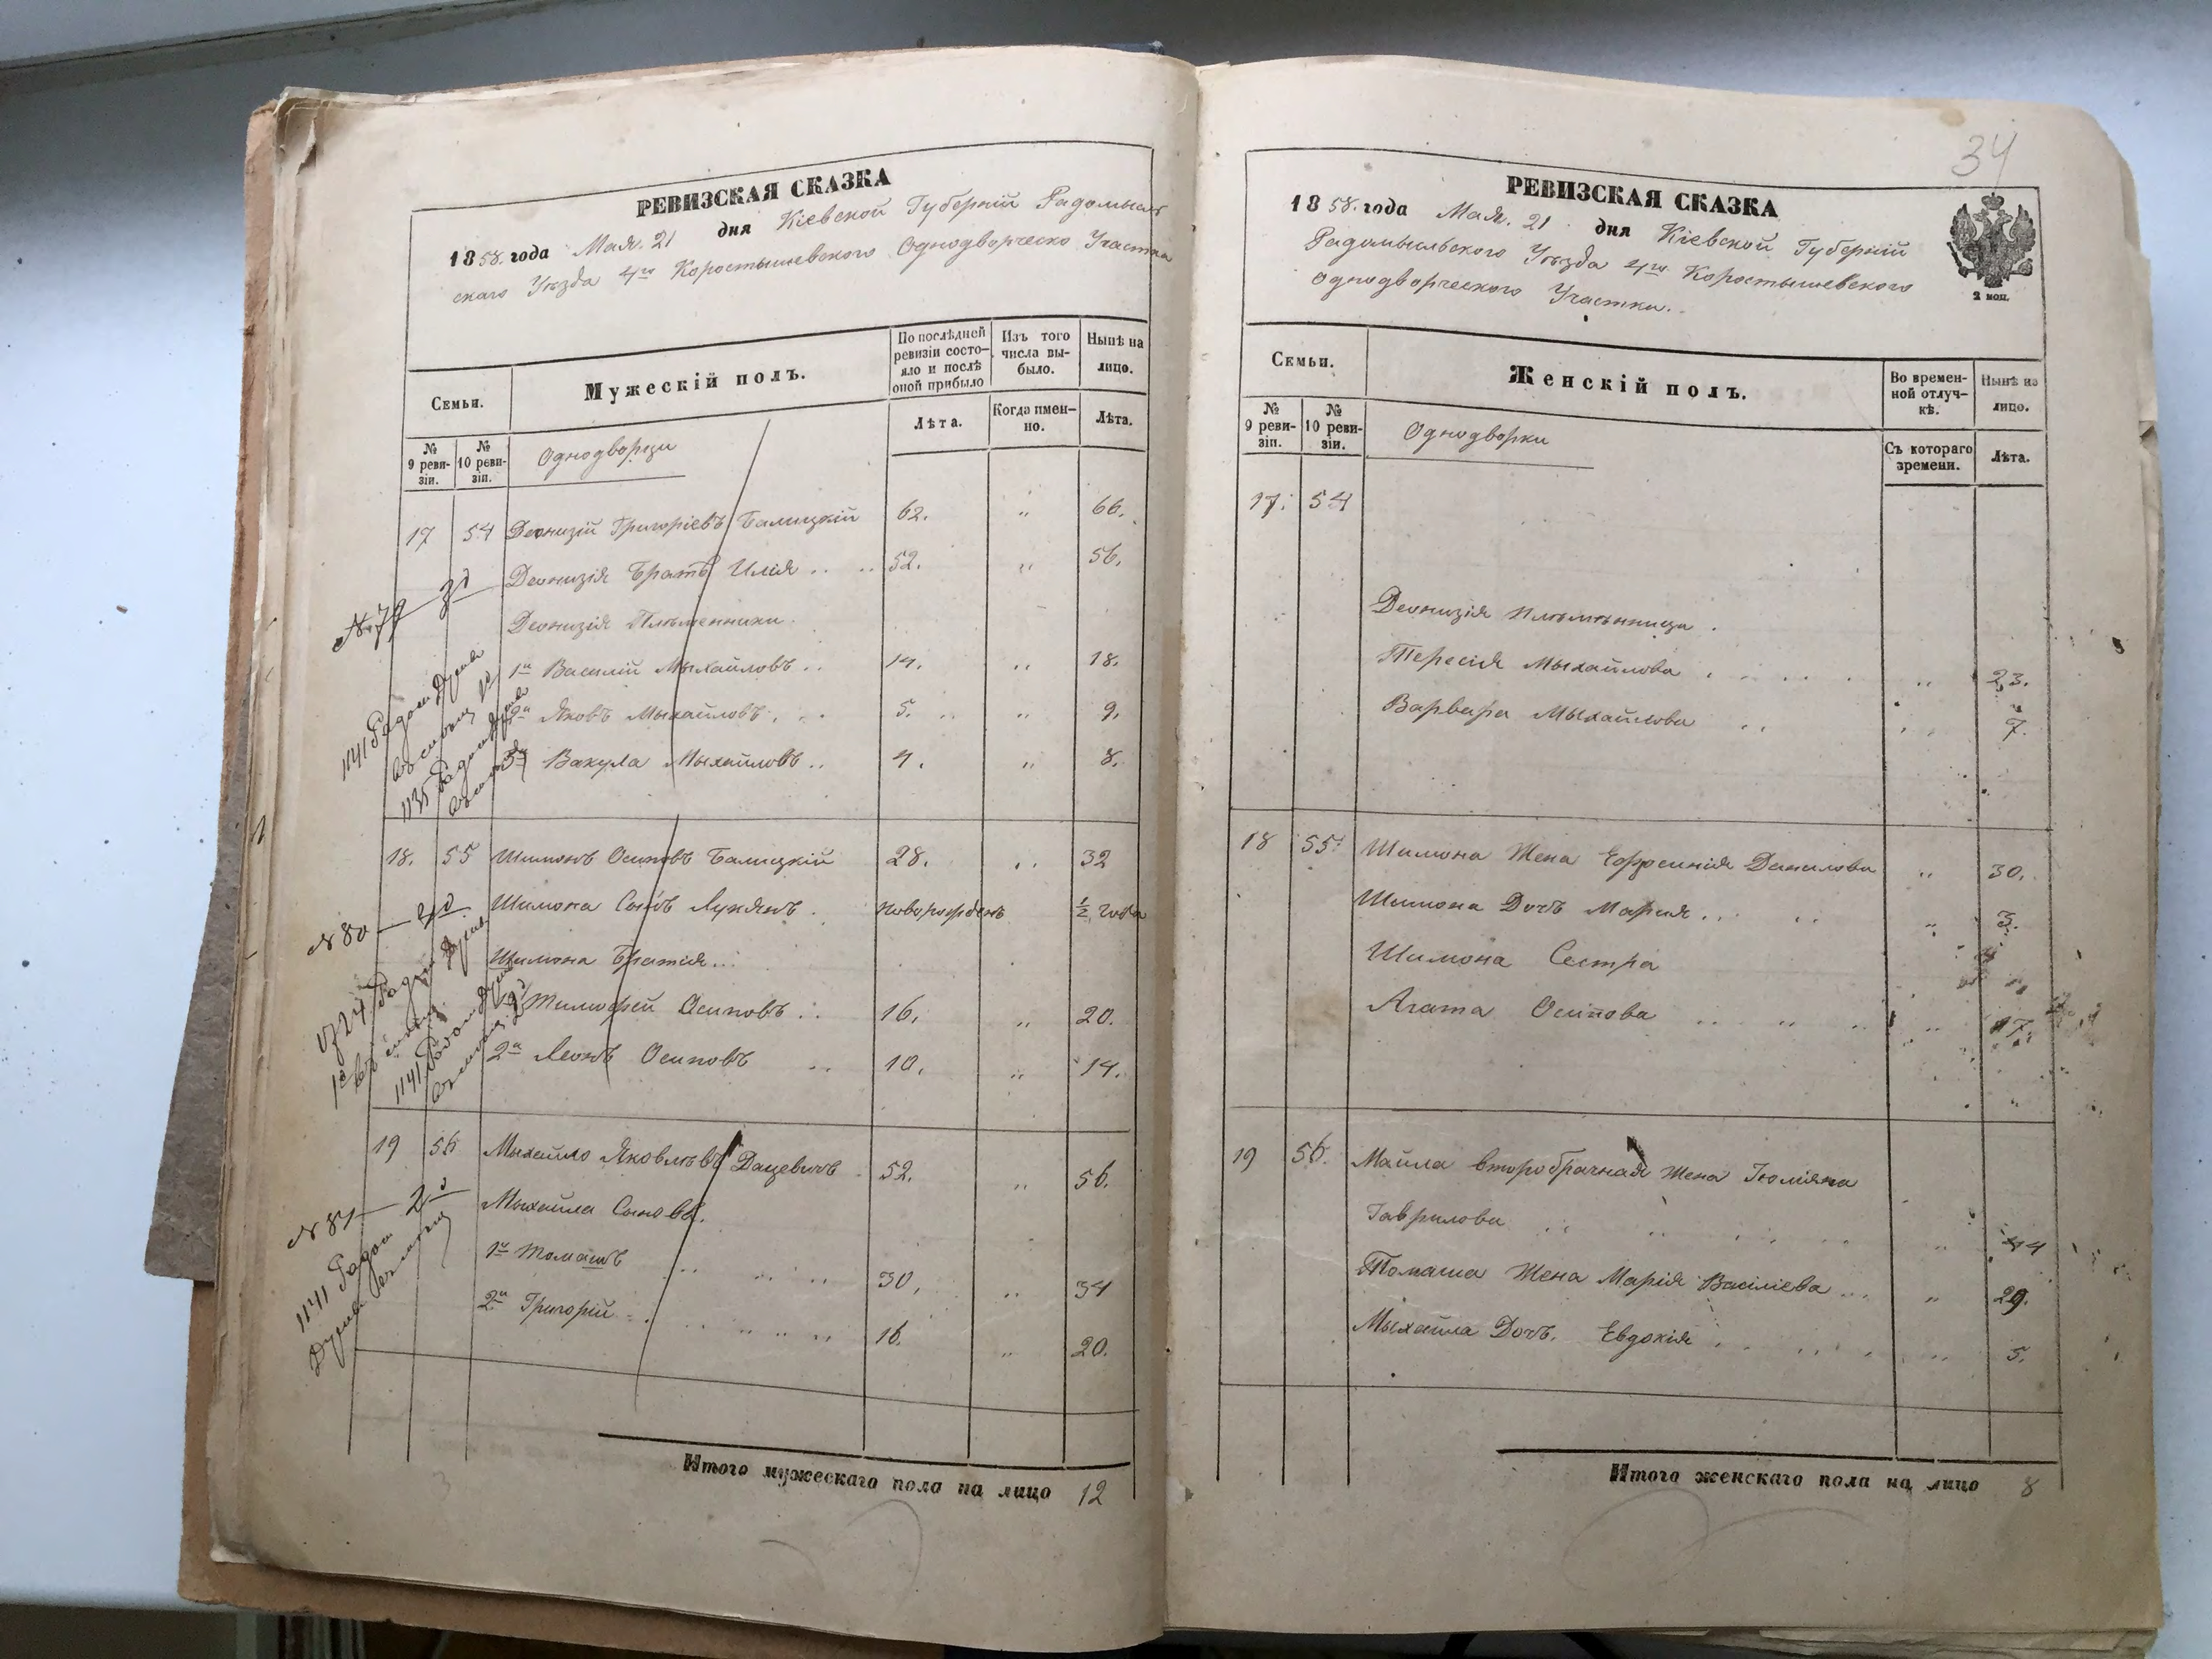 РЕВИЗСКАЯ СКАЗКА
1858. года Мая. 21 дня Кіевской Губерніи Радомысль
скаго Уѣзда 4го Коростышевского Однодворческо Участка
Семьи.
Мужескій полъ.
По послѣдней ревизіи состояло и послѣ оной прибыло
Изъ того числа выбыло.
Нынѣ на лицо.
№ 9 ревизіи.
№ 10 ревизіи.
Однодворци
Лѣта.
Когда именно.
Лѣта.
17 54 Деонизій Григоріевъ Балицкій 62. " 66.
Деонизія Братъ Илія .. .. 52. " 56.
Деонизія Племенники.
1й Василій Мыхайловъ .. 14. " 18.
2й Яковъ Мыхайловъ . .. 5. " 9.
3й Вакула Мыхайловъ .. 4. " 8.
№ 79
18. 55 Шимонъ Осиповъ Балицкій 28. " 32
Шимона Сынъ Лукянъ . новорожденъ ½ года
Шимона Братія...
Тимофей Осиповъ .. 16. " 20.
2й Леонъ Осиповъ .. 10. " 14.
№ 80
19 56 Мыхайло Яковлевъ Дацевичъ 52. " 56.
Мыхайла Сыновя.
1й Томашъ .. .. .. 30. " 34
2й Григорій .. .. .. 16. " 20.
№ 81
1141
Итого мужескаго пола на лицо 12
34
РЕВИЗСКАЯ СКАЗКА
1858. года Мая. 21 дня Кіевской Губерніи
Радомыльского Уѣзда 4го Коростышевского
Однодворческого Участка.
2 коп.
Семьи.
Женскій полъ.
Во временной отлучкѣ.
Нынѣ на лицо.
№ 9 ревизіи.
№ 10 ревизіи.
Однодворки
Съ котораго времени.
Лѣта.
17. 54
Деонизія племѣнници .
Тересія Мыхайлова . . . . . " 23.
Варвара Мыхайлова .. " 7.
18 55 Шимона Жена Ефросинія Данилова " 30.
Шимона Дочъ Марія .. .. " 3.
Шимона Сестра
Агата Осипова .. .. .. " 17.
19 56. Майла второбрачная Жена Іюліяна
Гаврилова .. .. " 44
Томаша Жена Марія Василіева ... " 29.
Мыхайла Дочъ. Евдокія . . . . . " 5.
Итого женскаго пола на лицо 8